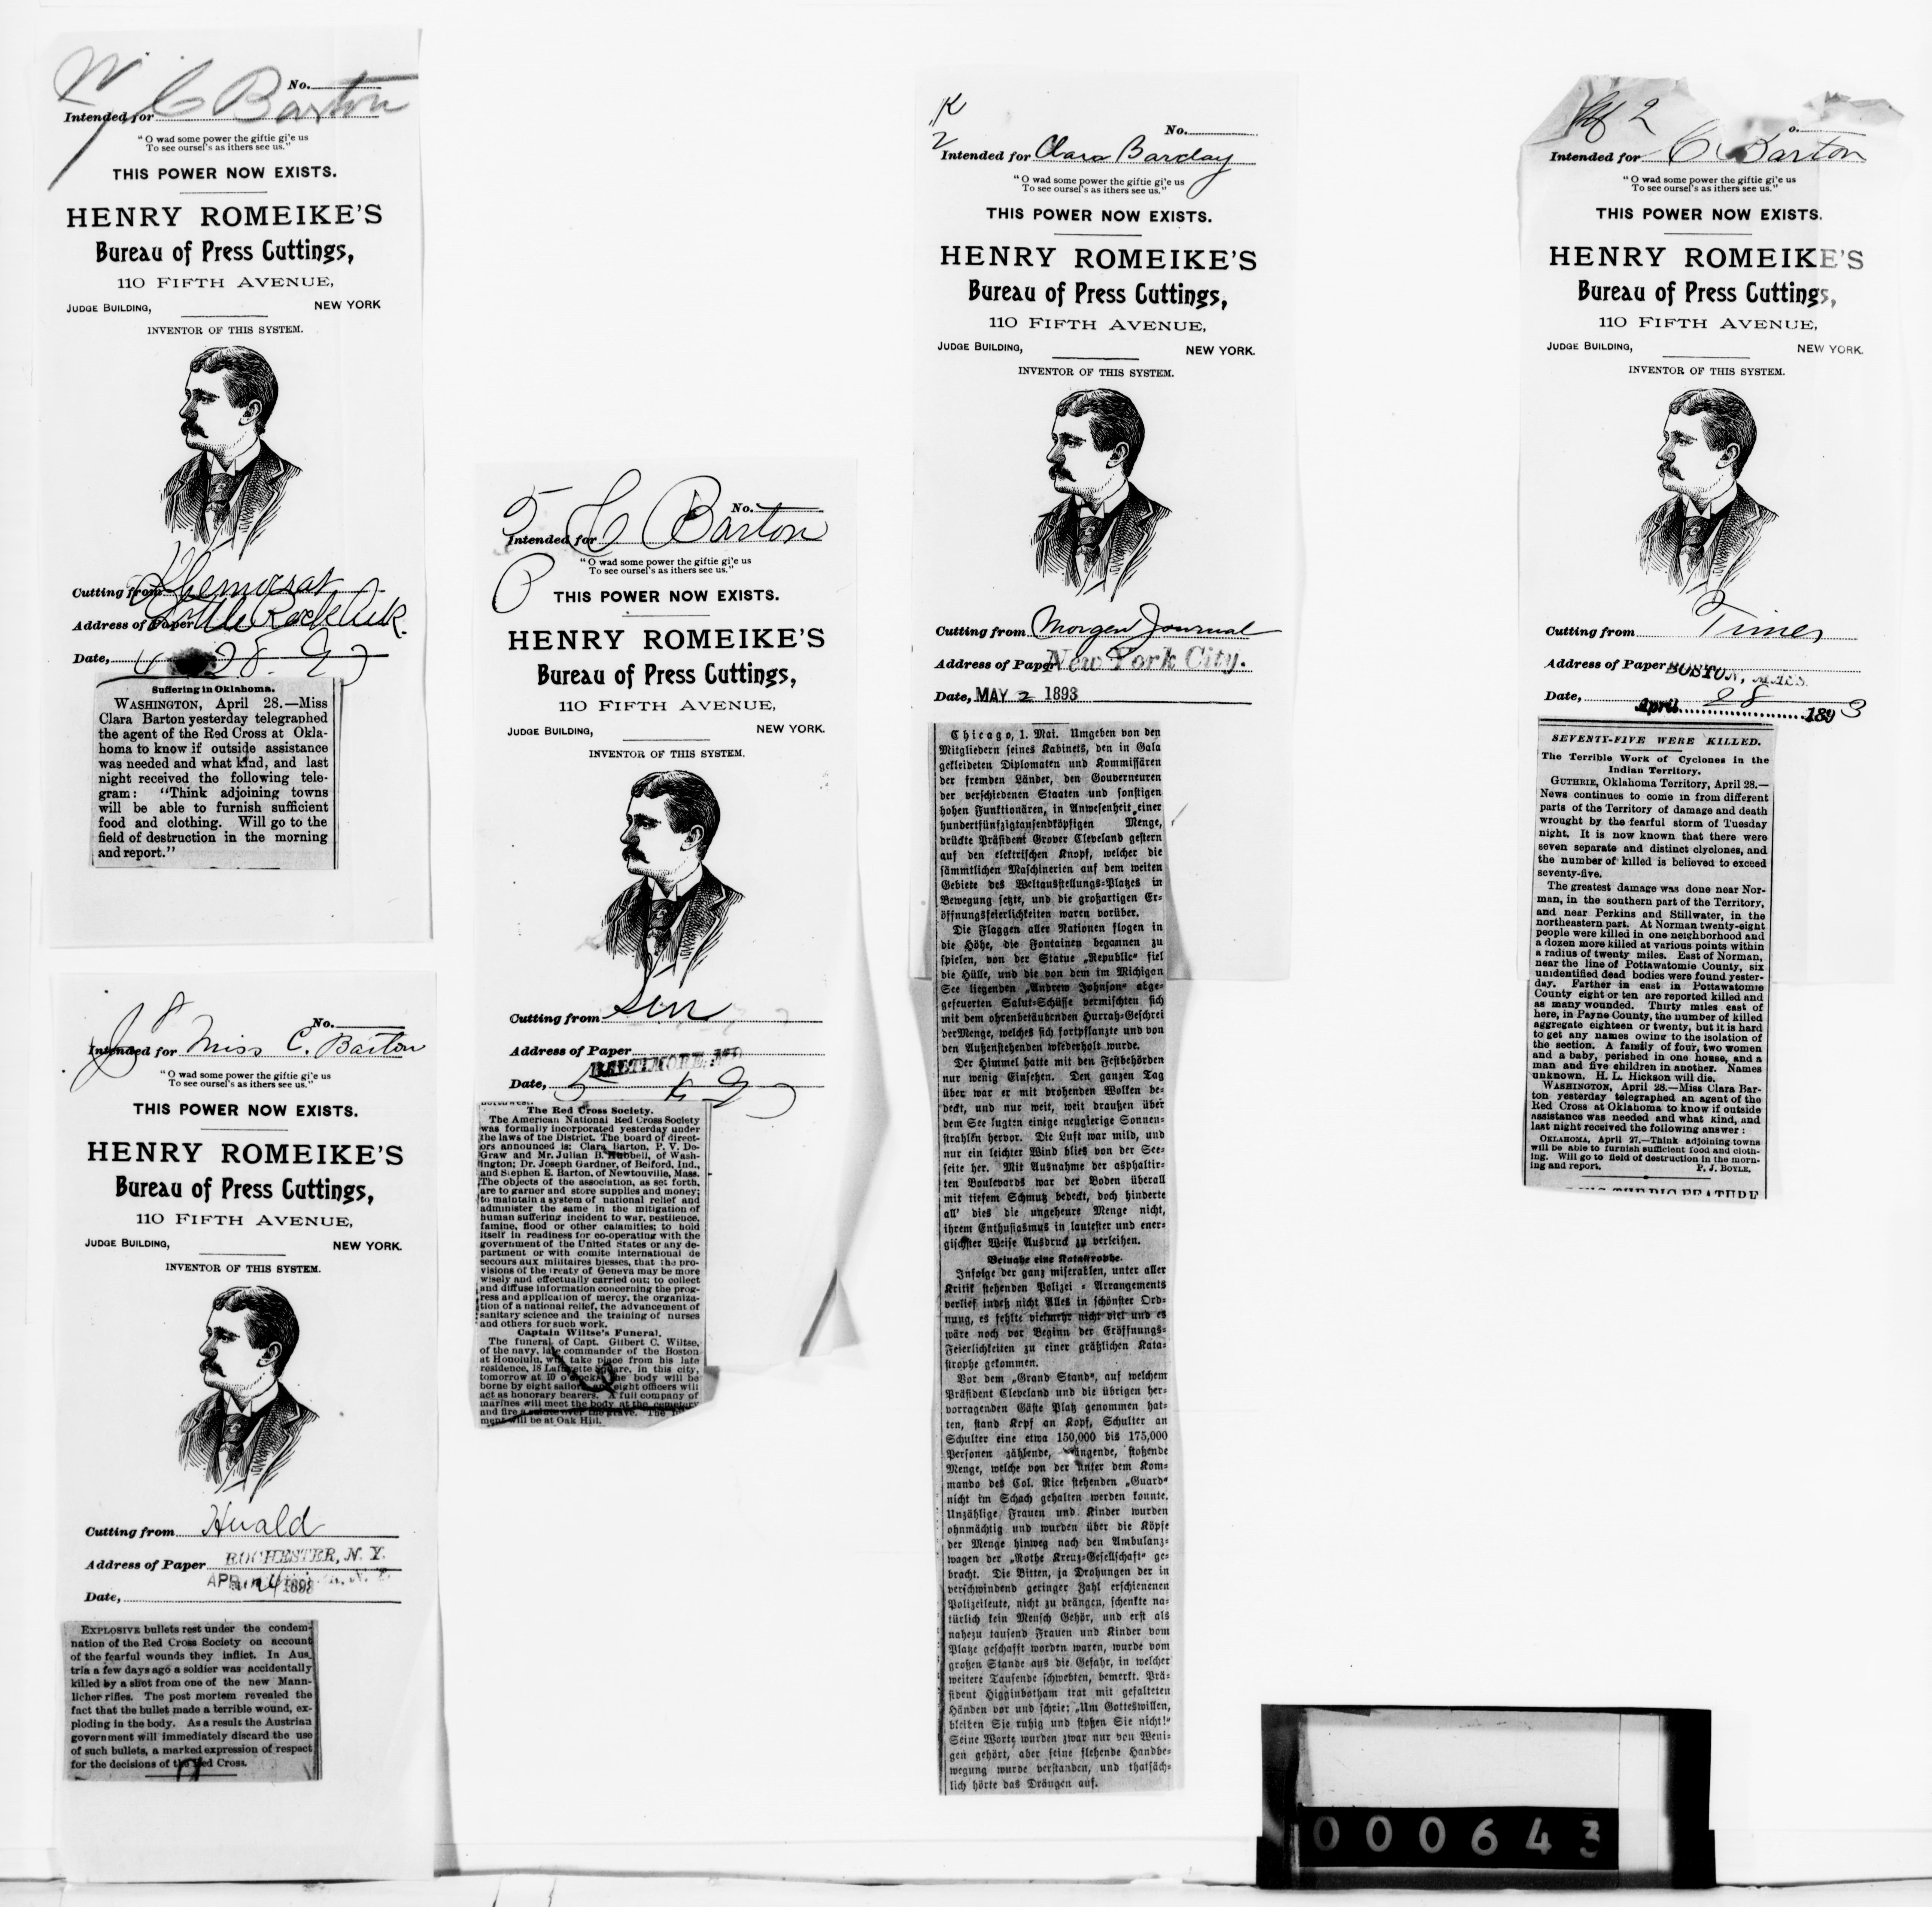 No.
Intended for C Barton
"O wad some power the giftie gi'e us
To see oursel's as ithers see us."
THIS POWER NOW EXISTS.
HENRY ROMEIKE'S
Bureau of Press Cuttings,
110 FIFTH AVENUE,
JUDGE BUILDING, NEW YORK
INVENTOR OF THIS SYSTEM.
Cutting from Democrat
Address of Paper Little Rock Ark.
Date, 4 28 93
Suffering in Oklahoma.
WASHINGTON, April 28.—Miss
Clara Barton yesterday telegraphed
the agent of the Red Cross at Okla-
homa to know if outside assistance
was needed and what kind, and last
night received the following tele-
gram: "Think adjoining towns
will be able to furnish sufficient
food and clothing. Will go to the
field of destruction in the morning
and report."
No.
Intended for Miss C. Barton
"O wad some power the giftie gi'e us
To see oursel's as ithers see us."
THIS POWER NOW EXISTS.
HENRY ROMEIKE'S
Bureau of Press Cuttings,
110 FIFTH AVENUE,
JUDGE BUILDING, NEW YORK.
INVENTOR OF THIS SYSTEM.
Cutting from Herald
Address of Paper ROCHESTER, N. Y.
Date,
EXPLOSIVE bullets rest under the condem-
nation of the Red Cross Society on account
of the fearful wounds they inflict. In Aus
tria a few days ago a soldier was accidentally
killed by a shot from one of the new Mann-
licher rifles. The post mortem revealed the
fact that the bullet made a terrible wound, ex-
ploding in the body. As a result the Austrian
government will immediately discard the use
of such bullets, a marked expression of respect
for the decisions of the Red Cross.
No.
Intended for C Barton
"O wad some power the giftie gi'e us
To see oursel's as ithers see us."
THIS POWER NOW EXISTS.
HENRY ROMEIKE'S
Bureau of Press Cuttings,
110 FIFTH AVENUE,
JUDGE BUILDING, NEW YORK.
INVENTOR OF THIS SYSTEM.
Cutting from Sun
Address of Paper BALTIMORE, MD.
Date, 5
The Red Cross Society.
The American National Red Cross Society
was formally incorporated yesterday under
the laws of the District. The board of direct-
ors announced is: Clara Barton, P. V. De-
Graw and Mr. Julian B. Hubbell, of Wash-
ington; Dr. Joseph Gardner, of Belford, Ind.,
and Stephen E. Barton, of Newtonville, Mass.
The objects of the association, as set forth,
are to garner and store supplies and money;
to maintain a system of national relief and
administer the same in the mitigation of
human suffering incident to war, pestilence,
famine, flood or other calamities; to hold
itself in readiness for co-operating with the
government of the United States or any de-
partment or with comite international de
secours aux militaires blesses, that the pro-
visions of the treaty of Geneva may be more
wisely and effectually carried out; to collect
and diffuse information concerning the prog-
ress and application of mercy, the organiza-
tion of a national relief, the advancement of
sanitary science and the training of nurses
and others for such work.
Captain Wiltse's Funeral.
The funeral of Capt. Gilbert C. Wiltse,
of the navy, late commander of the Boston
at Honolulu, will take place from his late
residence, 18 Lafayette Square, in this city,
tomorrow at 10 o'clock. The body will be
borne by eight sailors and eight officers will
act as honorary bearers. A full company of
marines will meet the body at the cemetery
and fire a salute over the grave. The
ment will be at Oak Hill.
K
2
No.
Intended for Clara Barclay
"O wad some power the giftie gi'e us
To see oursel's as ithers see us."
THIS POWER NOW EXISTS.
HENRY ROMEIKE'S
Bureau of Press Cuttings,
110 FIFTH AVENUE,
JUDGE BUILDING, NEW YORK.
INVENTOR OF THIS SYSTEM.
Cutting from Morgen Journal
Address of Paper New York City.
Date, MAY 2 1893
Chicago, 1. Mai. Umgeben von den
Mitgliedern seines Kabinets, den in Gala
gekleideten Diplomaten und Kommissären
der fremden Länder, den Gouverneuren
der verschiedenen Staaten und sonstigen
hohen Funktionären, in Anwesenheit einer
hundertfünfzigtausendköpfigen Menge,
drückte Präsident Grover Cleveland gestern
auf den elektrischen Knopf, welcher die
sämmtlichen Maschinerien auf dem weiten
Gebiete des Weltausstellungs-Platzes in
Bewegung setzte, und die großartigen Er-
öffnungsfeierlichkeiten waren vorüber.
Die Flaggen aller Nationen flogen in
die Höhe, die Fontainen begannen zu
spielen, von der Statue „Republic" fiel
die Hülle, und die von dem im Michigan
See liegenden „Andrew Johnson" abge-
gefeuerten Salut-Schüsse vermischten sich
mit dem ohrenbetäubenden Hurrah-Geschrei
der Menge, welches sich fortpflanzte und von
den Außenstehenden wiederholt wurde.
Der Himmel hatte mit den Festbehörden
nur wenig Einsehen. Den ganzen Tag
über war er mit drohenden Wolken be-
deckt, und nur weit, weit draußen über
dem See lugten einige neugierige Sonnen-
strahlen hervor. Die Luft war mild, und
nur ein leichter Wind blies von der See-
seite her. Mit Ausnahme der asphaltir-
ten Boulevards war der Boden überall
mit tiefem Schmutz bedeckt, doch hinderte
all' dies die ungeheure Menge nicht,
ihrem Enthusiasmus in lautester und ener-
gischster Weise Ausdruck zu verleihen.
Beinahe eine Katastrophe.
Infolge der ganz miserablen, unter aller
Kritik stehenden Polizei-Arrangements
verlief indeß nicht Alles in schönster Ord-
nung, es fehlte vielmehr nicht viel und es
wäre noch vor Beginn der Eröffnungs-
Feierlichkeiten zu einer gräßlichen Kata-
strophe gekommen.
Vor dem „Grand Stand", auf welchem
Präsident Cleveland und die übrigen her-
vorragenden Gäste Platz genommen hat-
ten, stand Kopf an Kopf, Schulter an
Schulter eine etwa 150,000 bis 175,000
Personen zählende, drängende, stoßende
Menge, welche von der unter dem Kom-
mando des Col. Rice stehenden „Guard"
nicht im Schach gehalten werden konnte.
Unzählige Frauen und Kinder wurden
ohnmächtig und wurden über die Köpfe
der Menge hinweg nach den Ambulanz-
wagen der „Rothe Kreuz-Gesellschaft" ge-
bracht. Die Bitten, ja Drohungen der in
verschwindend geringer Zahl erschienenen
Polizeileute, nicht zu drängen, schenkte na-
türlich kein Mensch Gehör, und erst als
nahezu tausend Frauen und Kinder vom
Platze geschafft worden waren, wurde vom
großen Stande aus die Gefahr, in welcher
weitere Tausende schwebten, bemerkt. Prä-
sident Higginbotham trat mit gefalteten
Händen vor und schrie: „Um Gotteswillen,
bleiben Sie ruhig und stoßen Sie nicht!"
Seine Worte wurden zwar nur von Weni-
gen gehört, aber seine flehende Handbe-
wegung wurde verstanden, und thatsäch-
lich hörte das Drängen auf.
2
Intended for C. Barton
"O wad some power the giftie gi'e us
To see oursel's as ithers see us."
THIS POWER NOW EXISTS.
HENRY ROMEIKE'S
Bureau of Press Cuttings,
110 FIFTH AVENUE,
JUDGE BUILDING, NEW YORK.
INVENTOR OF THIS SYSTEM.
Cutting from Times
Address of Paper BOSTON, MASS.
Date, April 28 1893
SEVENTY-FIVE WERE KILLED.
The Terrible Work of Cyclones in the
Indian Territory.
GUTHRIE, Oklahoma Territory, April 28.—
News continues to come in from different
parts of the Territory of damage and death
wrought by the fearful storm of Tuesday
night. It is now known that there were
seven separate and distinct clyclones, and
the number of killed is believed to exceed
seventy-five.
The greatest damage was done near Nor-
man, in the southern part of the Territory,
and near Perkins and Stillwater, in the
northeastern part. At Norman twenty-eight
people were killed in one neighborhood and
a dozen more killed at various points within
a radius of twenty miles. East of Norman,
near the line of Pottawatomie County, six
unidentified dead bodies were found yester-
day. Farther in east in Pottawatomie
County eight or ten are reported killed and
as many wounded. Thirty miles east of
here, in Payne County, the number of killed
aggregate eighteen or twenty, but it is hard
to get any names owing to the isolation of
the section. A family of four, two women
and a baby, perished in one house, and a
man and five children in another. Names
unknown. H. L. Hickson will die.
WASHINGTON, April 28.—Miss Clara Bar-
ton yesterday telegraphed an agent of the
Red Cross at Oklahoma to know if outside
assistance was needed and what kind, and
last night received the following answer:
OKLAHOMA, April 27.—Think adjoining towns
will be able to furnish sufficient food and cloth-
ing. Will go to field of destruction in the morn-
ing and report. P. J. BOYLE.
000643